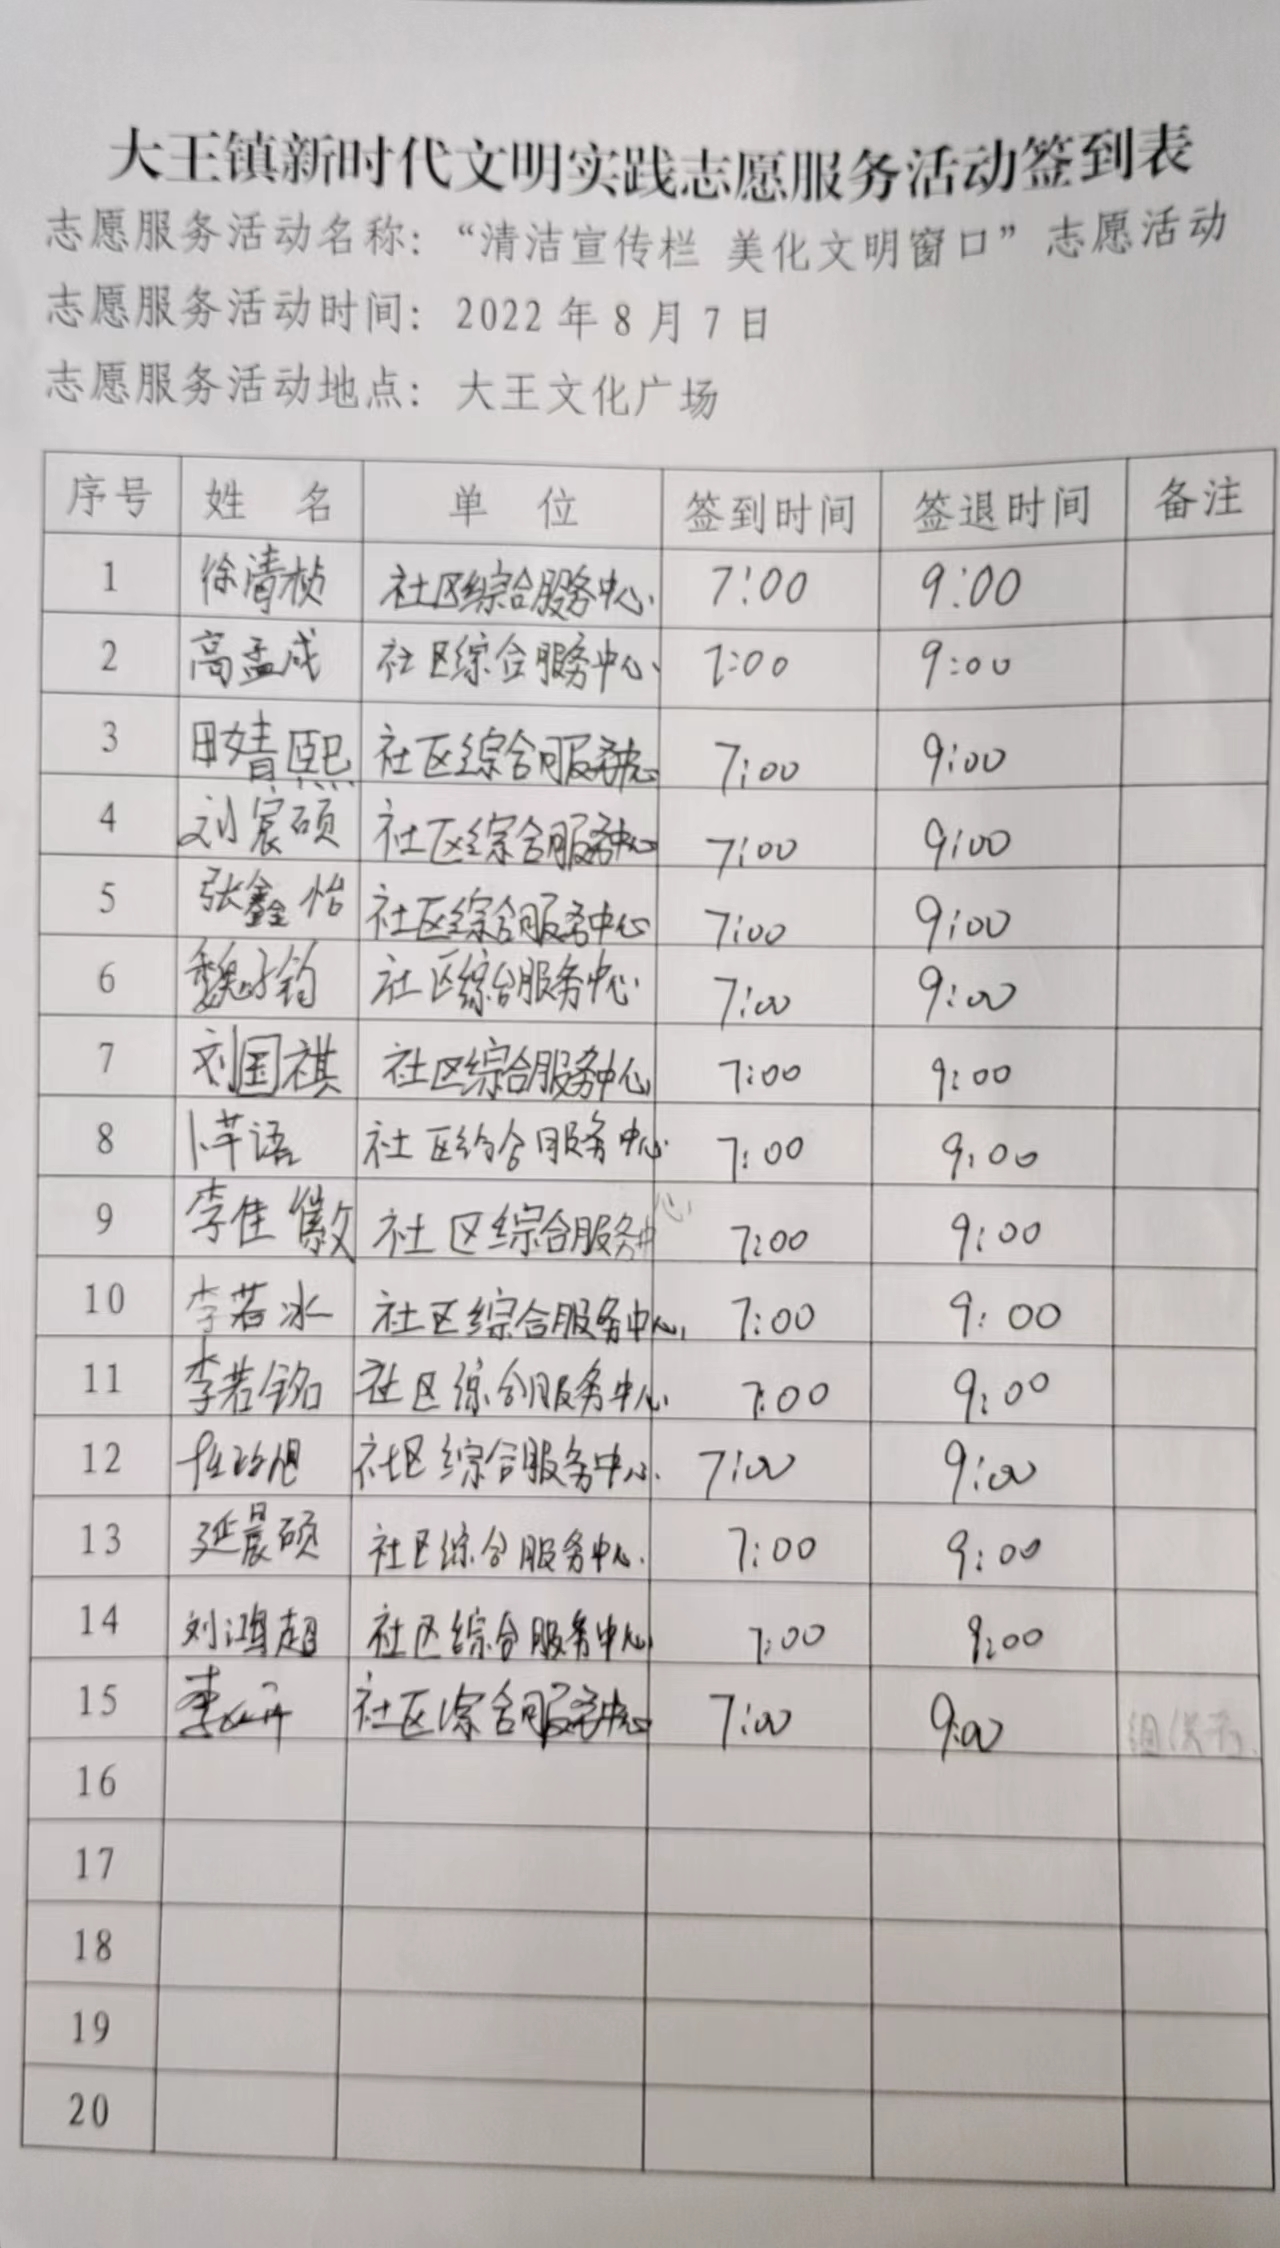 大王镇新时代文明实践志愿服务活动签到表
志愿服务活动名称：“清洁宣传栏 美化文明窗口”志愿活动
志愿服务活动时间：2022年8月7日
志愿服务活动地点：大王文化广场
序号 姓 名 单 位 签到时间 签退时间 备注
1 徐清桢 社区综合服务中心 7:00 9:00
2 高孟成 社区综合服务中心 7:00 9:00
3 田婧熙 社区综合服务中心 7:00 9:00
4 刘宸硕 社区综合服务中心 7:00 9:00
5 张鑫怡 社区综合服务中心 7:00 9:00
6 魏子钧 社区综合服务中心 7:00 9:00
7 刘国祺 社区综合服务中心 7:00 9:00
8 卜芊语 社区综合服务中心 7:00 9:00
9 李佳徽 社区综合服务中心 7:00 9:00
10 李若冰 社区综合服务中心 7:00 9:00
11 李若铭 社区综合服务中心 7:00 9:00
12 社区综合服务中心 7:00 9:00
13 延晨硕 社区综合服务中心 7:00 9:00
14 刘鸿超 社区综合服务中心 7:00 9:00
15 李妍 社区综合服务中心 7:00 9:00
16
17
18
19
20